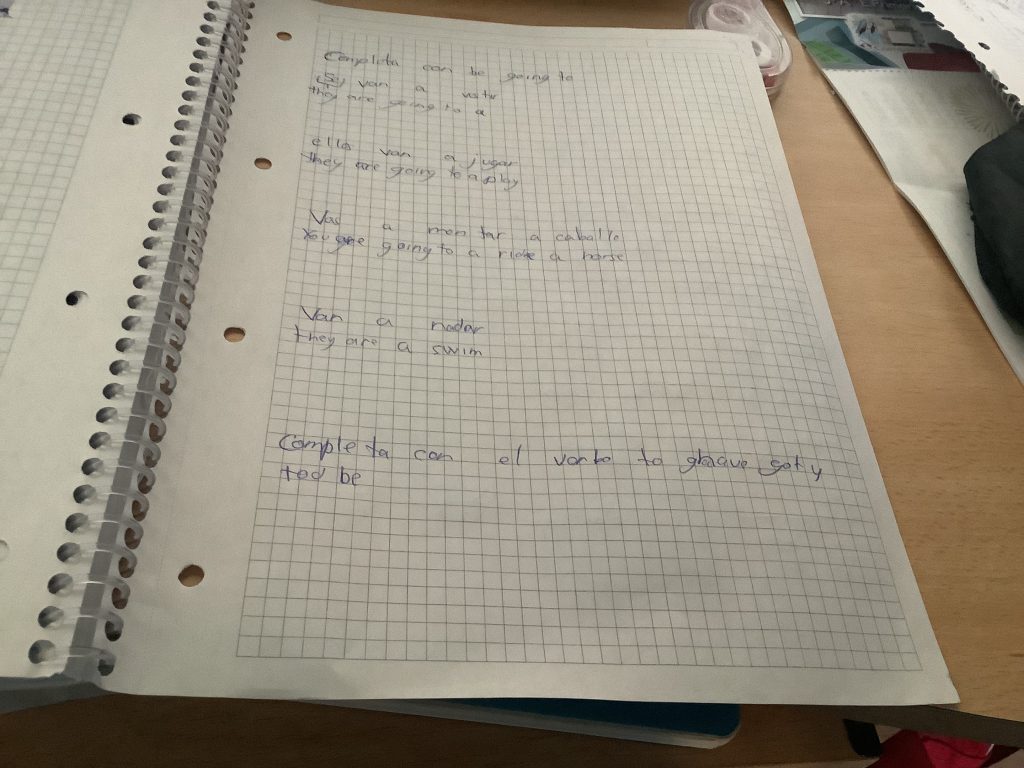 Completa con be going to
van a
they are going to a
ello van a jugar
they are going to a play
Vas a montar a caballo
You are going to a ride a horse
Van a nadar
they are a swim
Completa con el verbo to have got y
too be